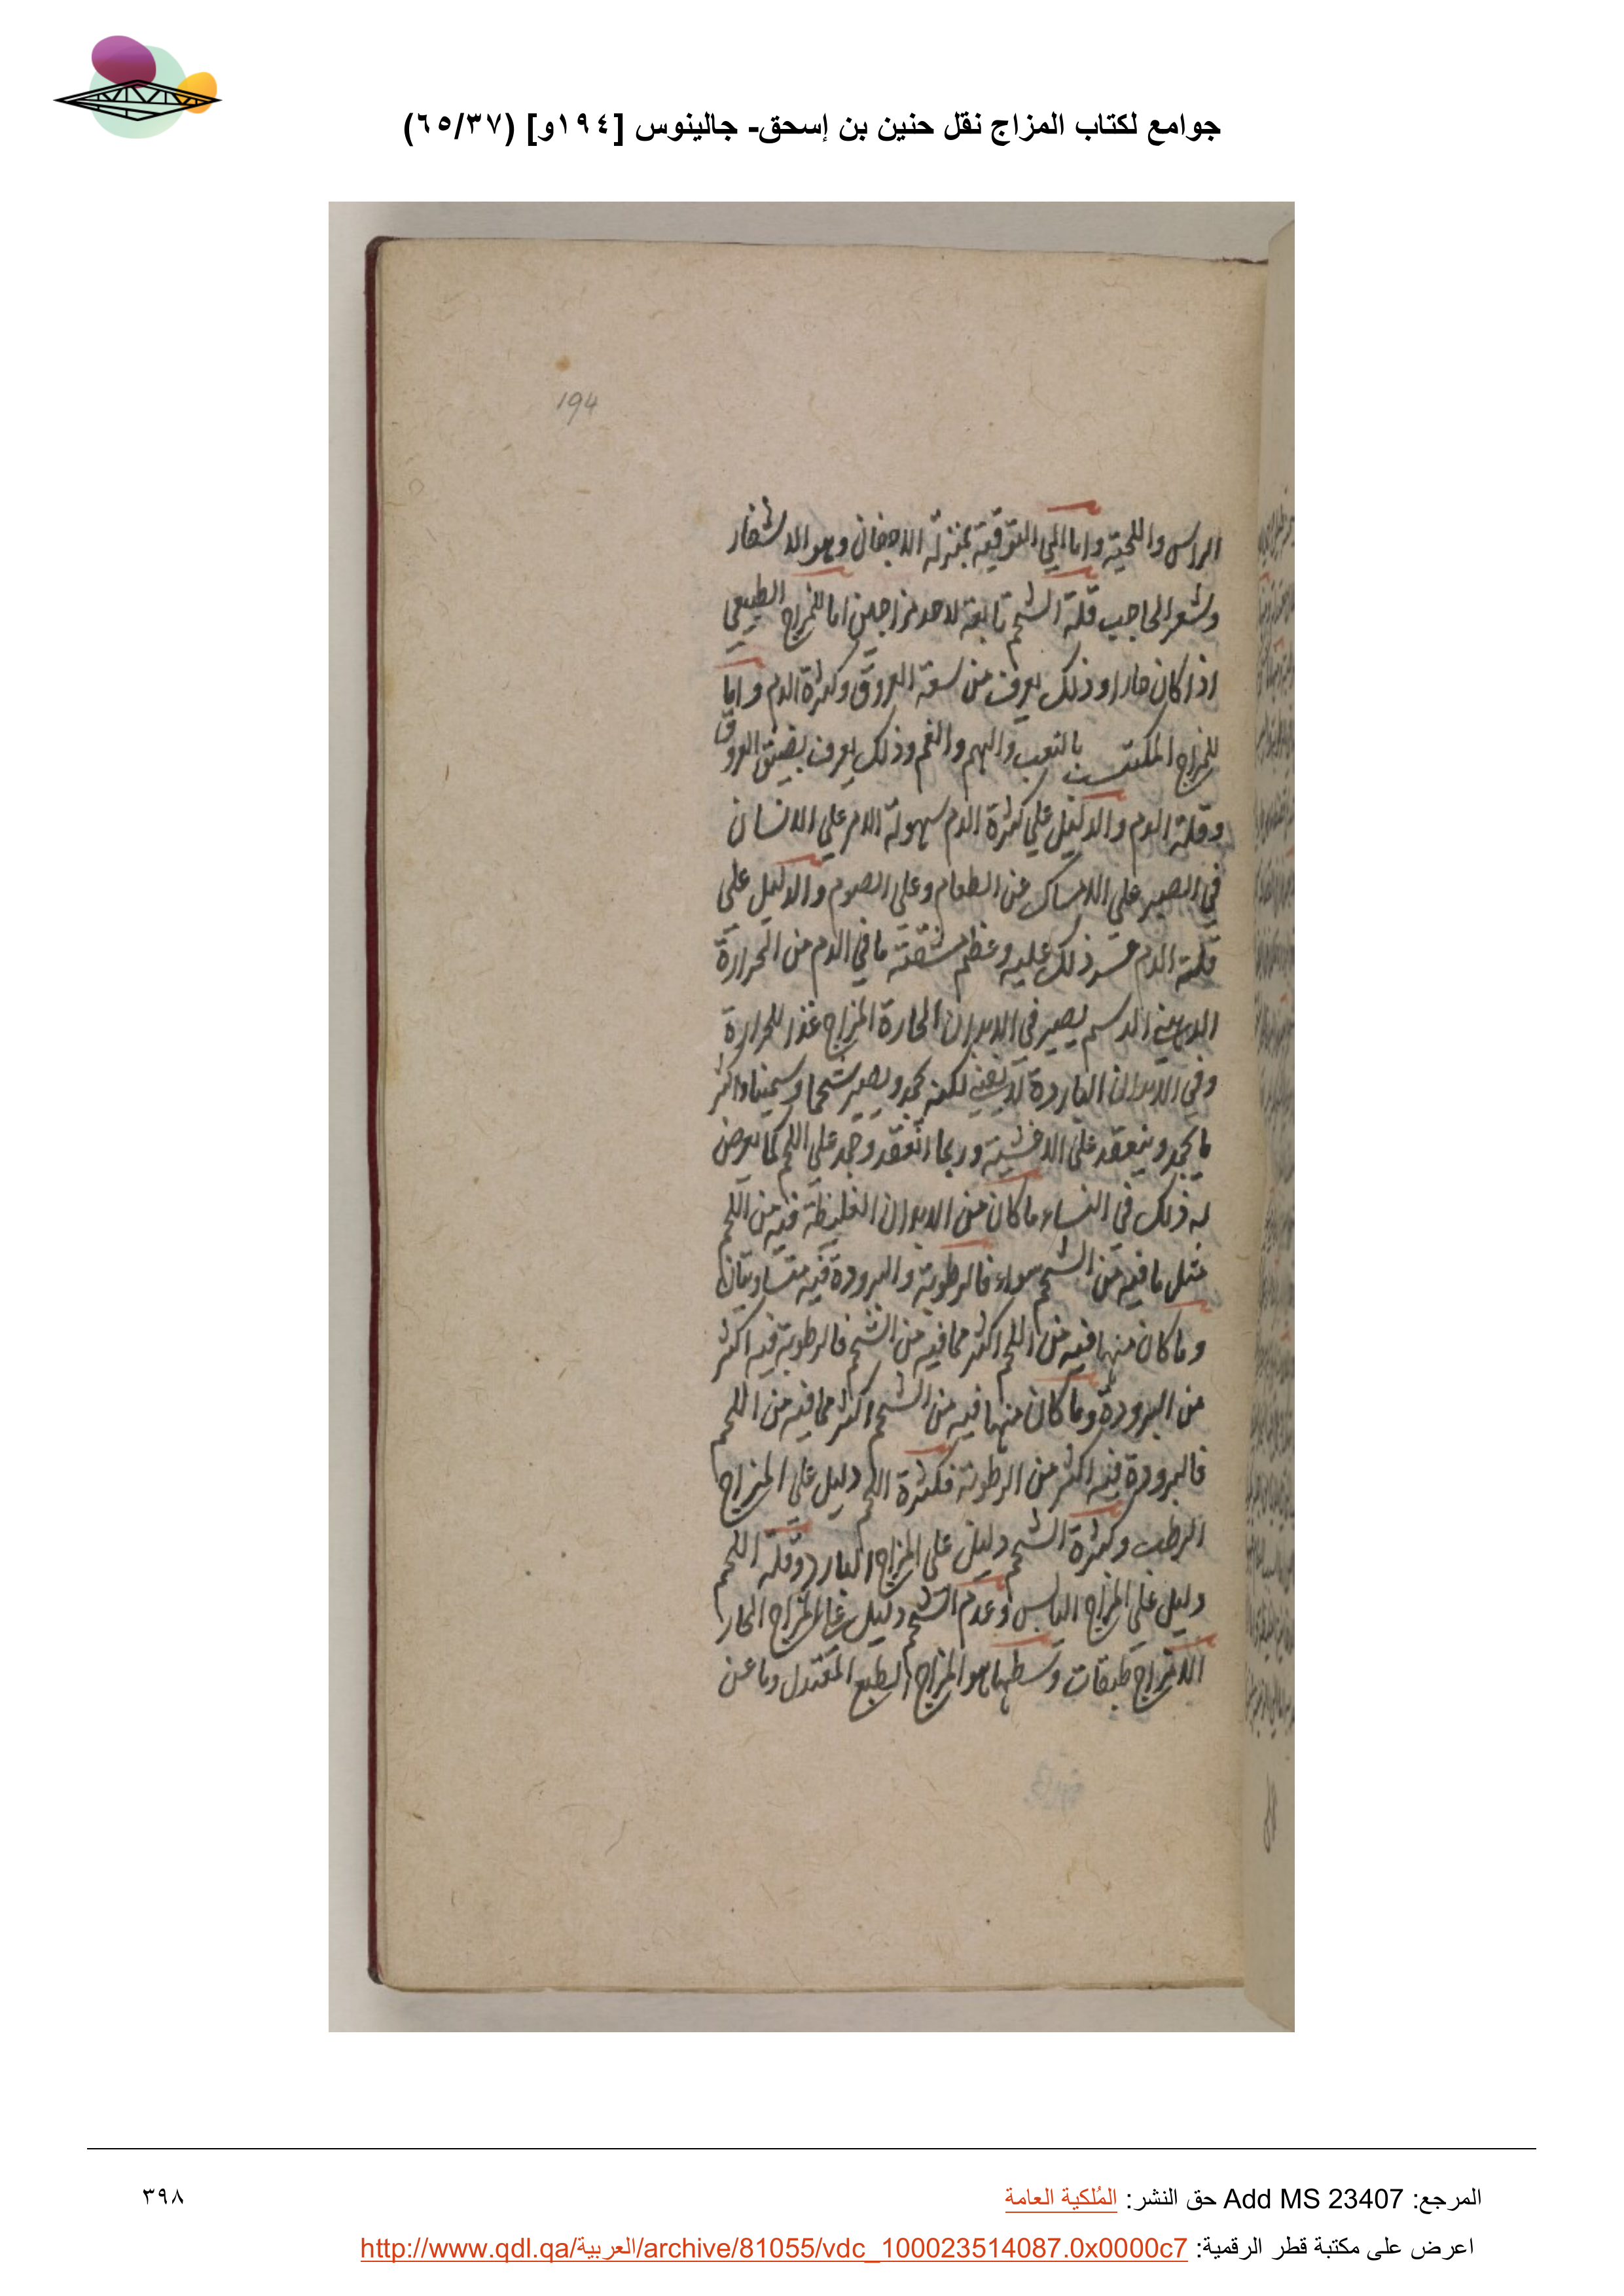 جوامع لكتاب المزاج نقل حنين بن إسحق- جالينوس [١٩٤و] (٦٥/٣٧)
194
الراس واللحية واما الي التوقية بمنزلة الاجفان وهو الاشفار
وشعر الحاجب قلة الشحم تابعة لاحد مزاجين اما للمزاج الطبيعي
اذا كان حارا وذلك يعرف من سعة العروق وكثرة الدم واما
للمزاج المكتسب بالتعب والهم والغم وذلك يعرف بضيق العروق
وقلة الدم والدليل علي كثرة الدم سهولة الامر علي الانسان
في الصبر علي الامساك عن الطعام وعلي الصوم والدليل علي
قلة الدم عسر ذلك عليه وعظم مشقته ما في الدم من الحرارة
الدهنية الدسم يصير في الابدان الحارة المزاج غذا للحرارة
وفي الابدان الباردة لكنه يجمد ويصير شحما وسمينا واكثر
ما يجمد وينعقد علي الاغشية وربما انعقد وجمد علي اللحم كما يعرض
له ذلك في النساء ما كان من الابدان الغليظة فيه من اللحم
مثل ما فيه من الشحم سواء فالرطوبة والبرودة فيه متساويتان
وما كان منها فيه من اللحم اكثر مما فيه من الشحم فالرطوبة فيه اكثر
من البرودة وما كان منها فيه من الشحم اكثر مما فيه من اللحم
فالبرودة فيه اكثر من الرطوبة فكثرة اللحم دليل علي المزاج
الرطب وكثرة الشحم دليل علي المزاج البارد وقلة اللحم
دليل علي المزاج اليابس وعدم الشحم دليل علي المزاج الحار
الامزاج طبقات وسطها هو المزاج الطبع المعتدل وما عن
المرجع: Add MS 23407 حق النشر: المُلكية العامة
٣٩٨
اعرض على مكتبة قطر الرقمية: http://www.qdl.qa/العربية/archive/81055/vdc_100023514087.0x0000c7